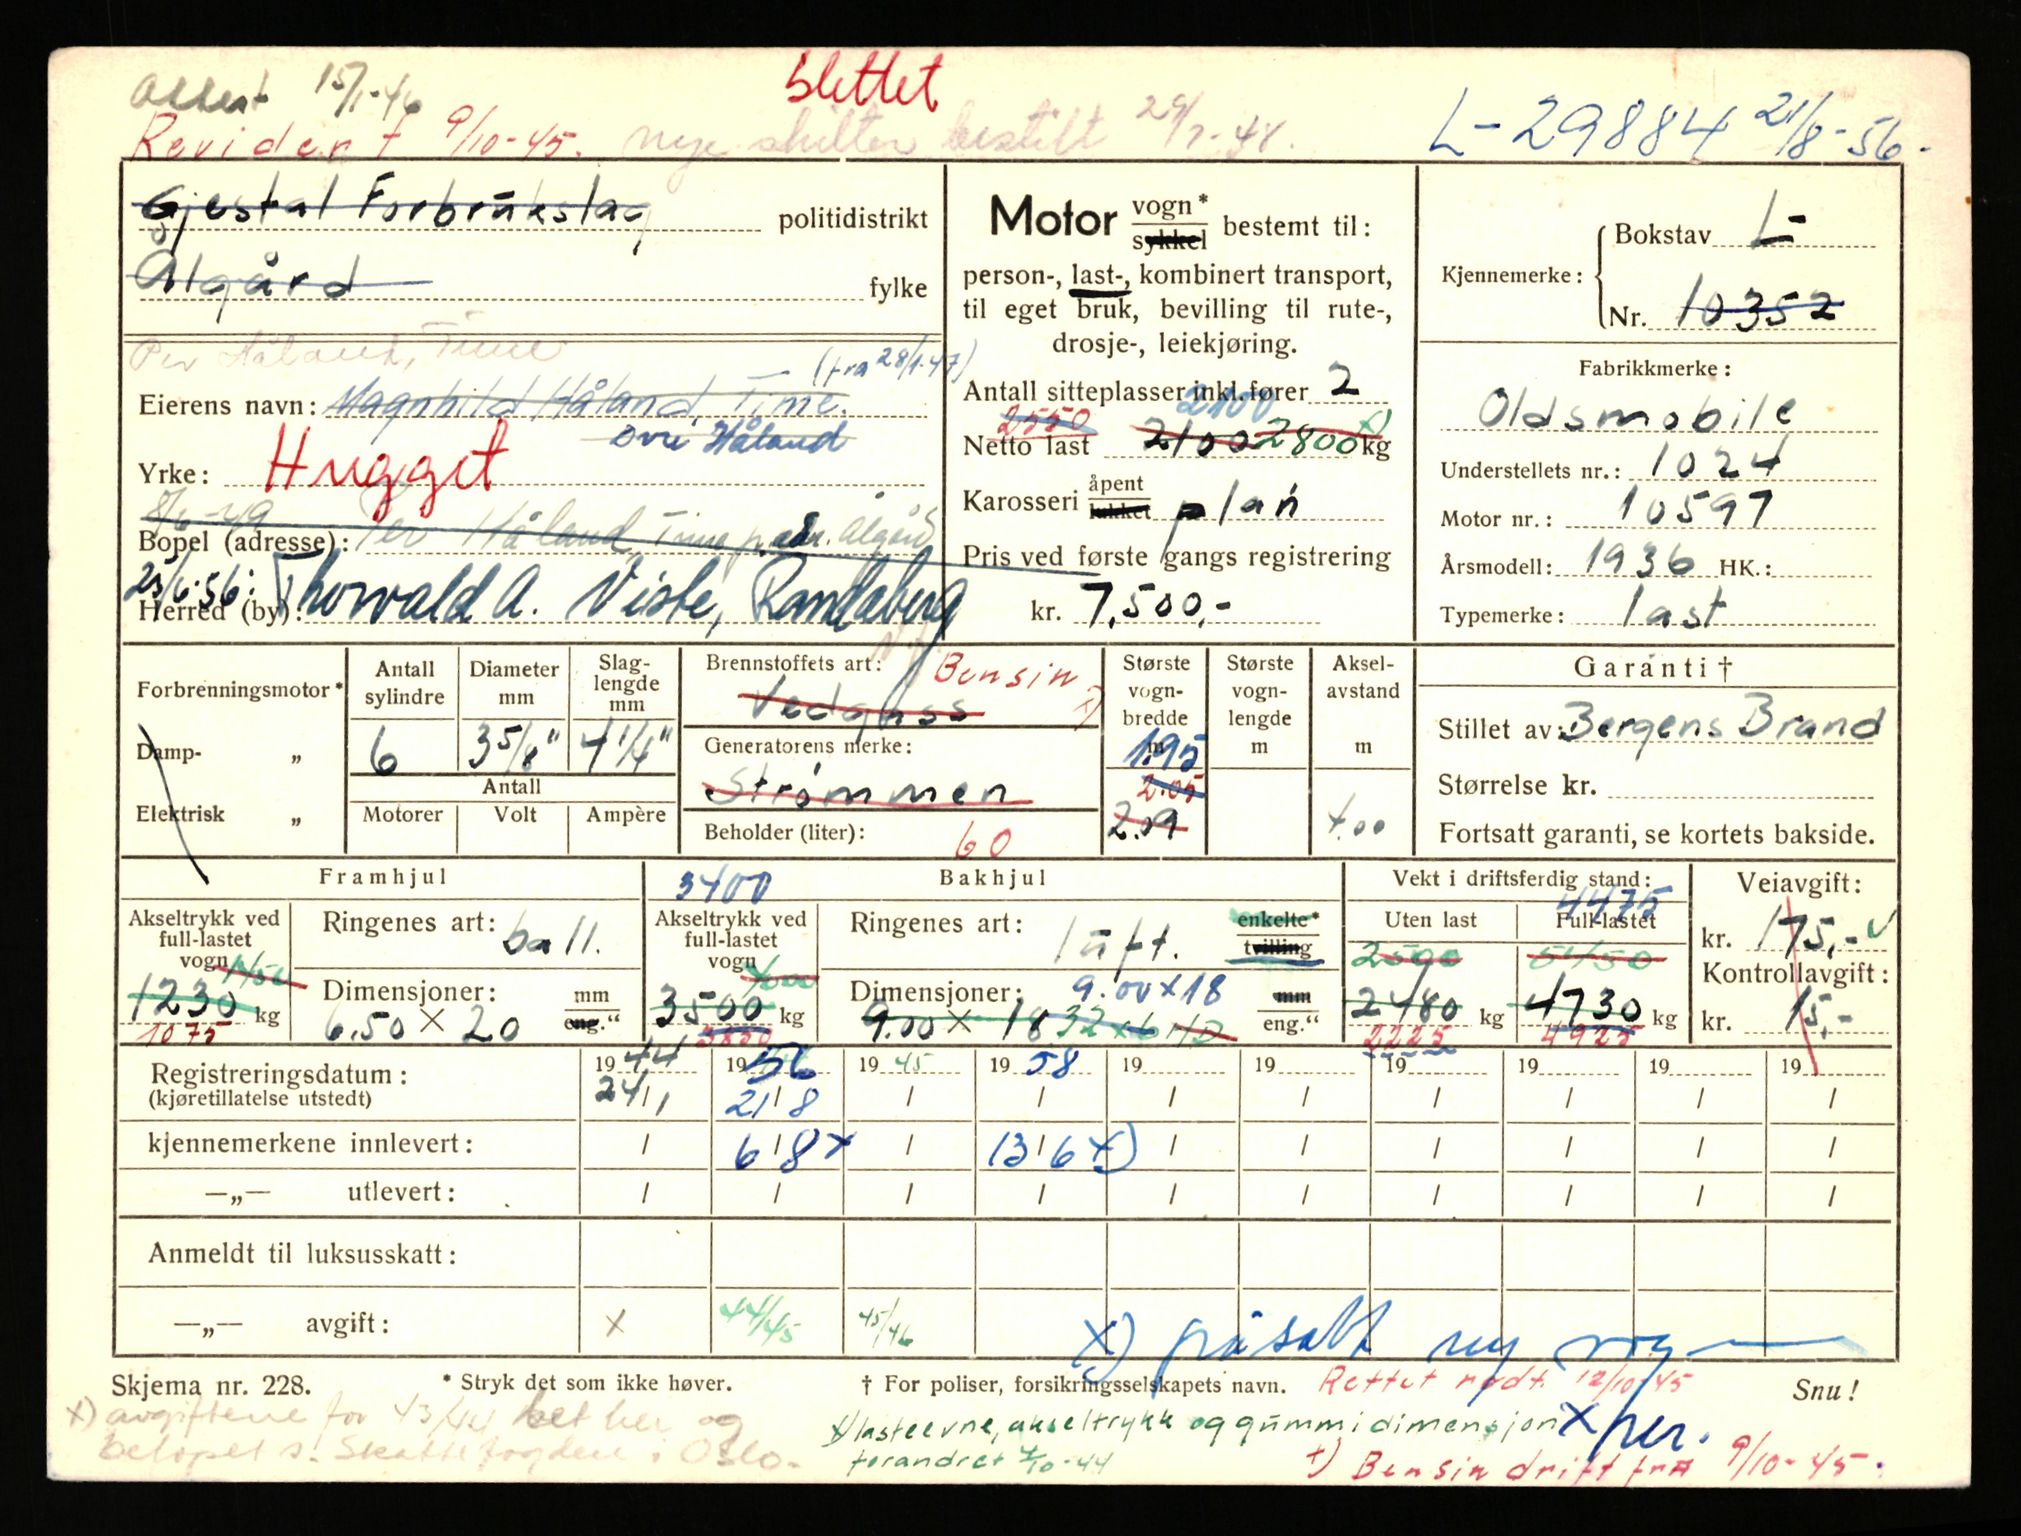 Attest 15/1-46
slettet
Revidert 9/10-45. nye skilter bestilt 29/7-48.
L-29884 21/8-56.
Gjestal Forbrukslag politidistrikt
Ålgård fylke
Per Håland, Time
(fra 28/1-47)
Eierens navn: Magnhild Håland, Time.
Øvre Håland
Yrke: Hugget
8/6-49 Per Håland Time p.adr. Ålgård
Bopel (adresse):
25/6-56: Thorvald A. Viste, Randaberg
Herred (by):
Motor vogn* sykkel bestemt til:
person-, last-, kombinert transport,
til eget bruk, bevilling til rute-,
drosje-, leiekjøring.
Antall sitteplasser inkl. fører 2
2550 2100
Netto last 2100 2800 kg
Karosseri åpent lukket plan
Pris ved første gangs registrering
kr. 7,500,-
Kjennemerke: Bokstav L-
Nr. 10352
Fabrikkmerke:
Oldsmobile
Understellets nr.: 1024
Motor nr.: 10597
Årsmodell: 1936 HK.:
Typemerke: last
Forbrenningsmotor*
Damp- „
Elektrisk „
Antall sylindre
6
Diameter mm
3 5/8"
Slaglengde mm
4 1/4"
Antall
Motorer Volt Ampère
Brennstoffets art: Bensin x)
Vedgass
Generatorens merke:
Strømmen
Beholder (liter): 60
Største vogn-bredde m
1.95
2.05
2.09
Største vogn-lengde m
Aksel-avstand m
4.00
Garanti †
Stillet av: Bergens Brand
Størrelse kr.
Fortsatt garanti, se kortets bakside.
Framhjul
Akseltrykk ved full-lastet vogn 1450
1230 kg
1075
Ringenes art: ball.
Dimensjoner: mm
6.50 × 20 eng."
3400 Bakhjul
Akseltrykk ved full-lastet vogn 4000
3500 kg
3850
Ringenes art: luft. enkelte* tvilling
Dimensjoner: 9.00x18 mm
9.00 × 18 32x6 eng."
Vekt i driftsferdig stand:
4475
Uten last Full-lastet
2500 5450
2480 kg 4730 kg
2225 4925
Veiavgift:
kr. 175,-
Kontrollavgift:
kr. 15,-
Registreringsdatum: 1944 1956 1945 1958 19 19 19 19 19 19
(kjøretillatelse utstedt) 24/1 21/8 / / / / / / / /
kjennemerkene innlevert: / 6/8 x / 13/6 x) / / / / / /
—„— utlevert: / / / / / / / / / /
Anmeldt til luksusskatt:
—„— avgift: x 44/45 45/46
x) påsatt ny vogn
Skjema nr. 228. * Stryk det som ikke høver. † For poliser, forsikringsselskapets navn. Rettet nødt. 12/10-45 Snu!
x) avgiftene for 43/44 bet her og
beløpet s. Skattefogdene i Oslo.
x) lasteevne, akseltrykk og gummidimensjon
forandret 4/10-44
x per.
†) Bensindrift fra 9/10-45.